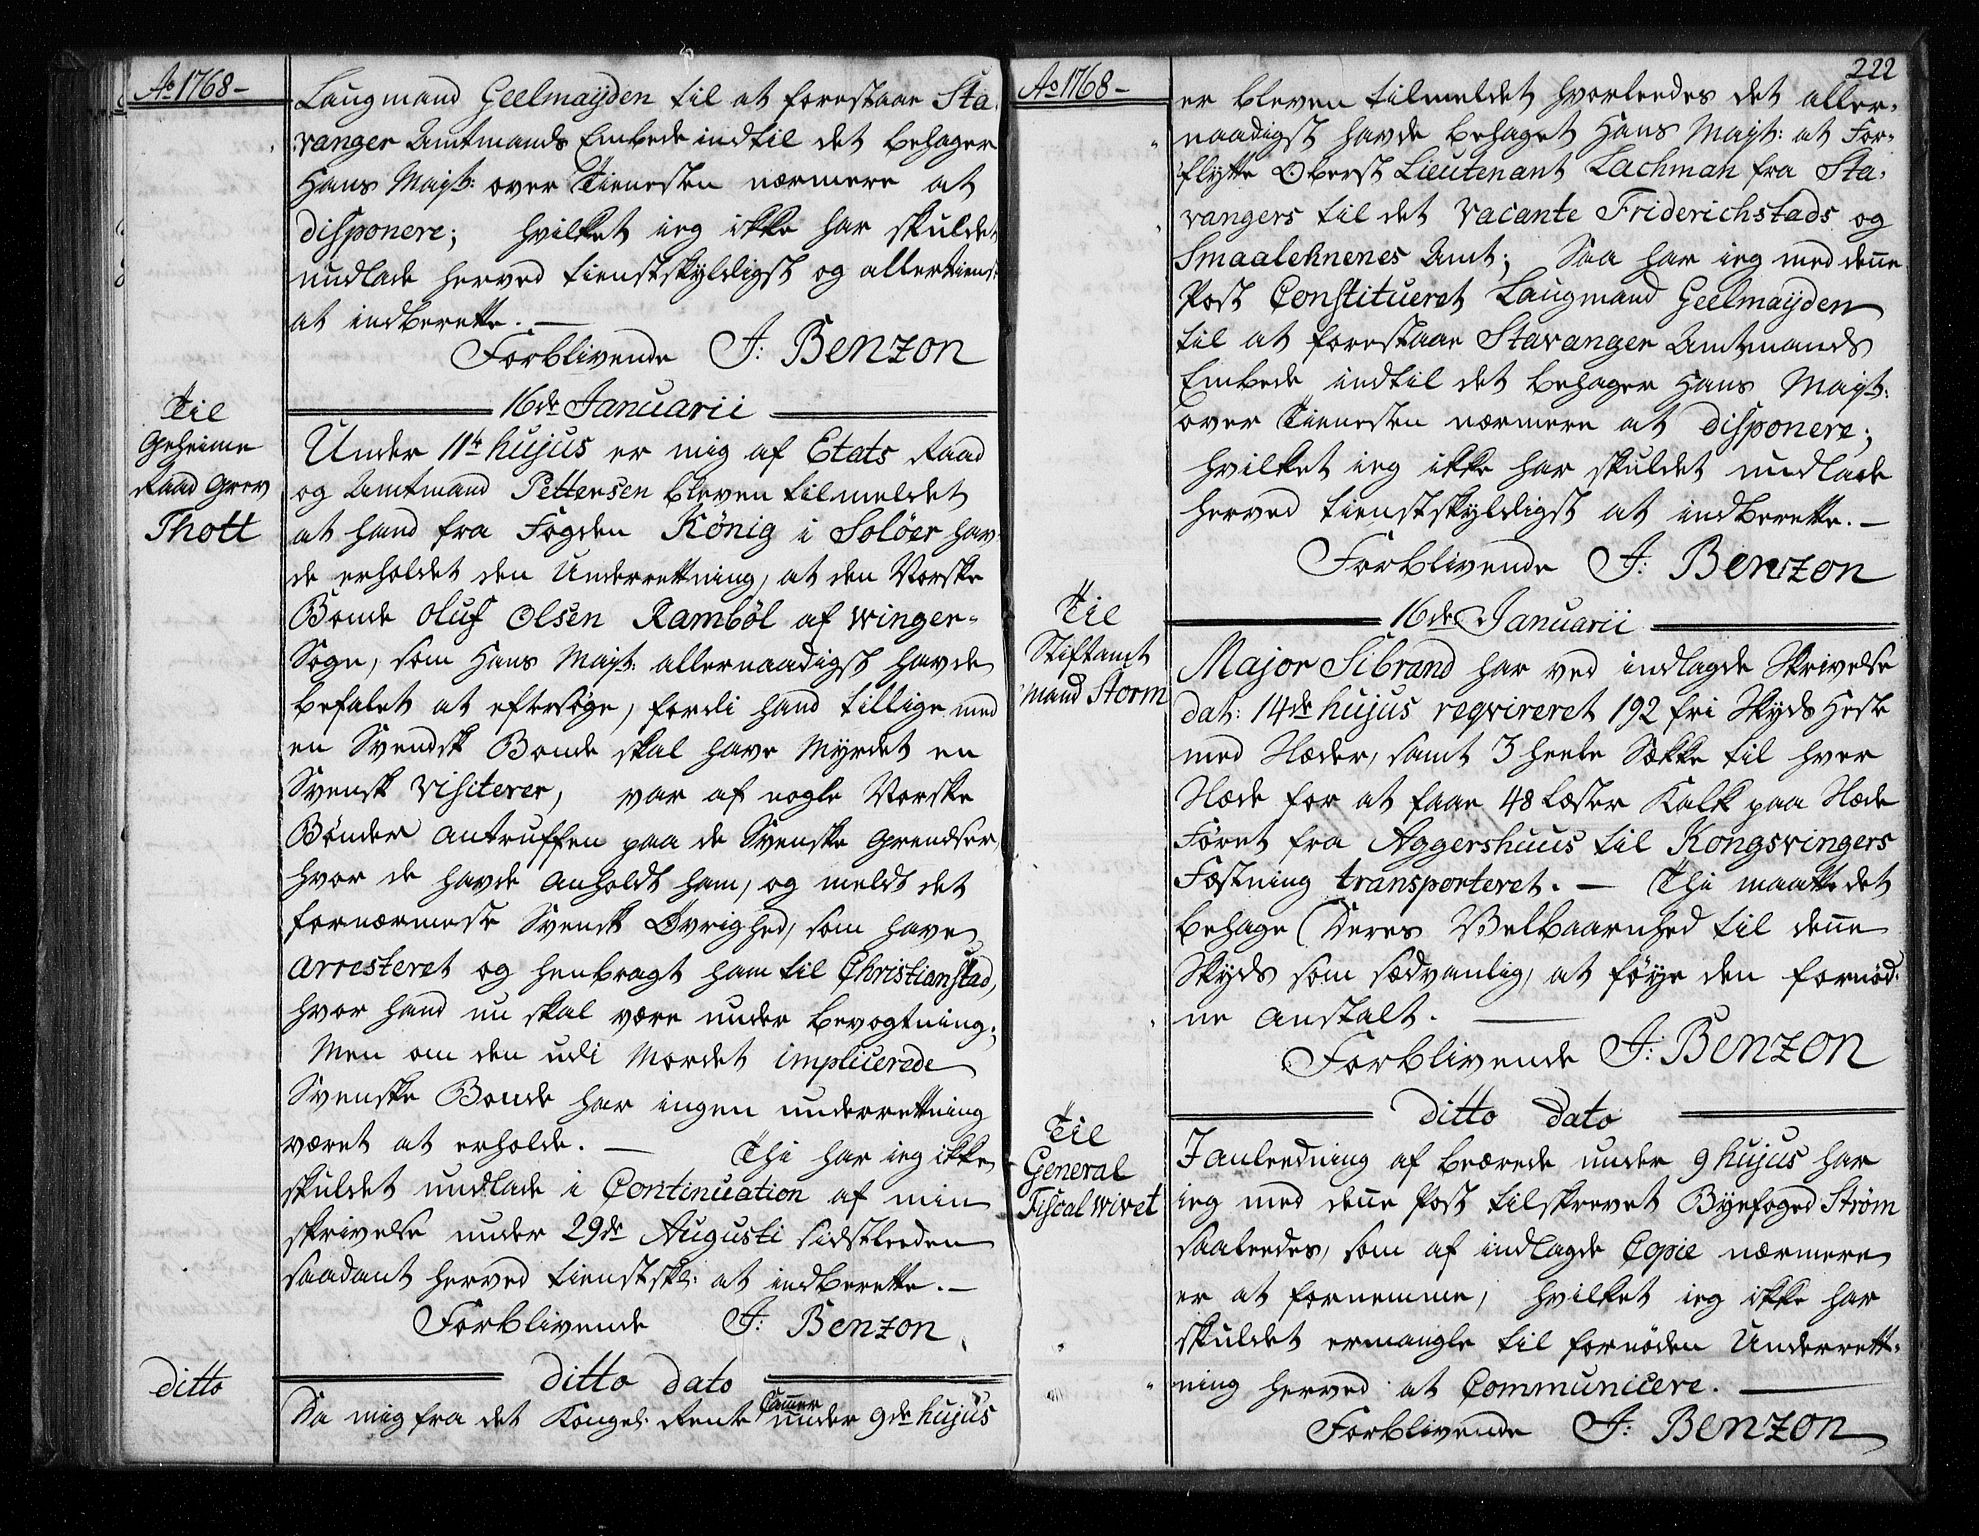 Ao 1768 –
Laugmand Geelmayden til at forestaae Sta-
vanger Amtmands Embede indtil det behager
Hans Mayt: over Tienesten nærmere at
disponere; hvilket ieg ikke har skuldet
undlade herved tienstskyldigst og allertienst
at indberette. —
Forblivende J: Benzon
16de Januarii
Til
Geheime
Raad Grev
Thott
Under 11te hujus er mig af Etats Raad
og Amtmand Pettersen bleven tilmeldet
at hand fra Fogden König i Solöer hav-
de erholdet den Underrettning, at den Norske
Bonde Oluf Olsen Ramböl af Winger-
Sogn, som Hans Mayt: allernaadigst havde
befalet at eftersøge, fordi hand tillige med
en Svendsk Bonde skal have Myrdet en
Svensk Visiterer, var af nogle Norske
Bønder antruffen paa de Svenske Grendser
hvor de havde anholdt ham, og meldt det
fornærmeste Svensk Øvrighed, som have
arresteret og henbragt ham til Christianstad,
hvor hand nu skal være under bevogtning;
Men om den udi Mordet implicerede
Svenske Bonde har ingen underrettning
været at erholde. — Thi har ieg ikke
skuldet undlade i Continuation af min
skrivelse under 29de Augusti sidstleeden
saadant herved tienstskl: at indberette. —
Forblivende J: Benzon
ditto dato
ditto
Da mig fra det Kongel: Rente Camer under 9de hujus
222
Ao 1768 –
er bleven tilmeldet hvorleedes det aller-
naadigst havde behaget Hans Mayt: at For-
flytte Oberst Lieutenant Lachman fra Sta-
vangers til det vacante Friderichstads og
Smaalehnenes Amt; Saa har ieg med dene
Post Constitueret Laugmand Geelmayden
til at forestaae Stavanger Amtmands
Embede indtil det behager Hans Mayt:
over Tienesten nærmere at disponere;
hvilket ieg ikke har skuldet undlade
herved tienstskyldigst at indberette. —
Forblivende J: Benzon
16de Januarii
Til
Stiftamt
mand Storm
Major Sibrand har ved indlagde Skrivelse
dat: 14de hujus reqvireret 192 fri Skyds Heste
med Slæder, samt 3 heele Sække til hver
Slæde for at faae 48 Læster Kalk paa Slæde
Føret fra Aggershuus til Kongsvingers
Fæstning transporteret. — Thi maatte det
behage Deres Velbaarnhed til dene
Skyds som sædvanlig, at føye den fornød-
ne Anstalt. —
Forblivende J: Benzon
ditto dato
Til
General
Fiscal Wivet
I anleedning af bærede under 9 hujus har
ieg med dene Post tilskrevet Byefoged Strøm
saaleedes, som af indlagde Copie nærmere
er at fornemme, hvilket ieg ikke har
skuldet ermangle til fornøden Underrett-
ning herved at Communicere. —
Forblivende J: Benzon